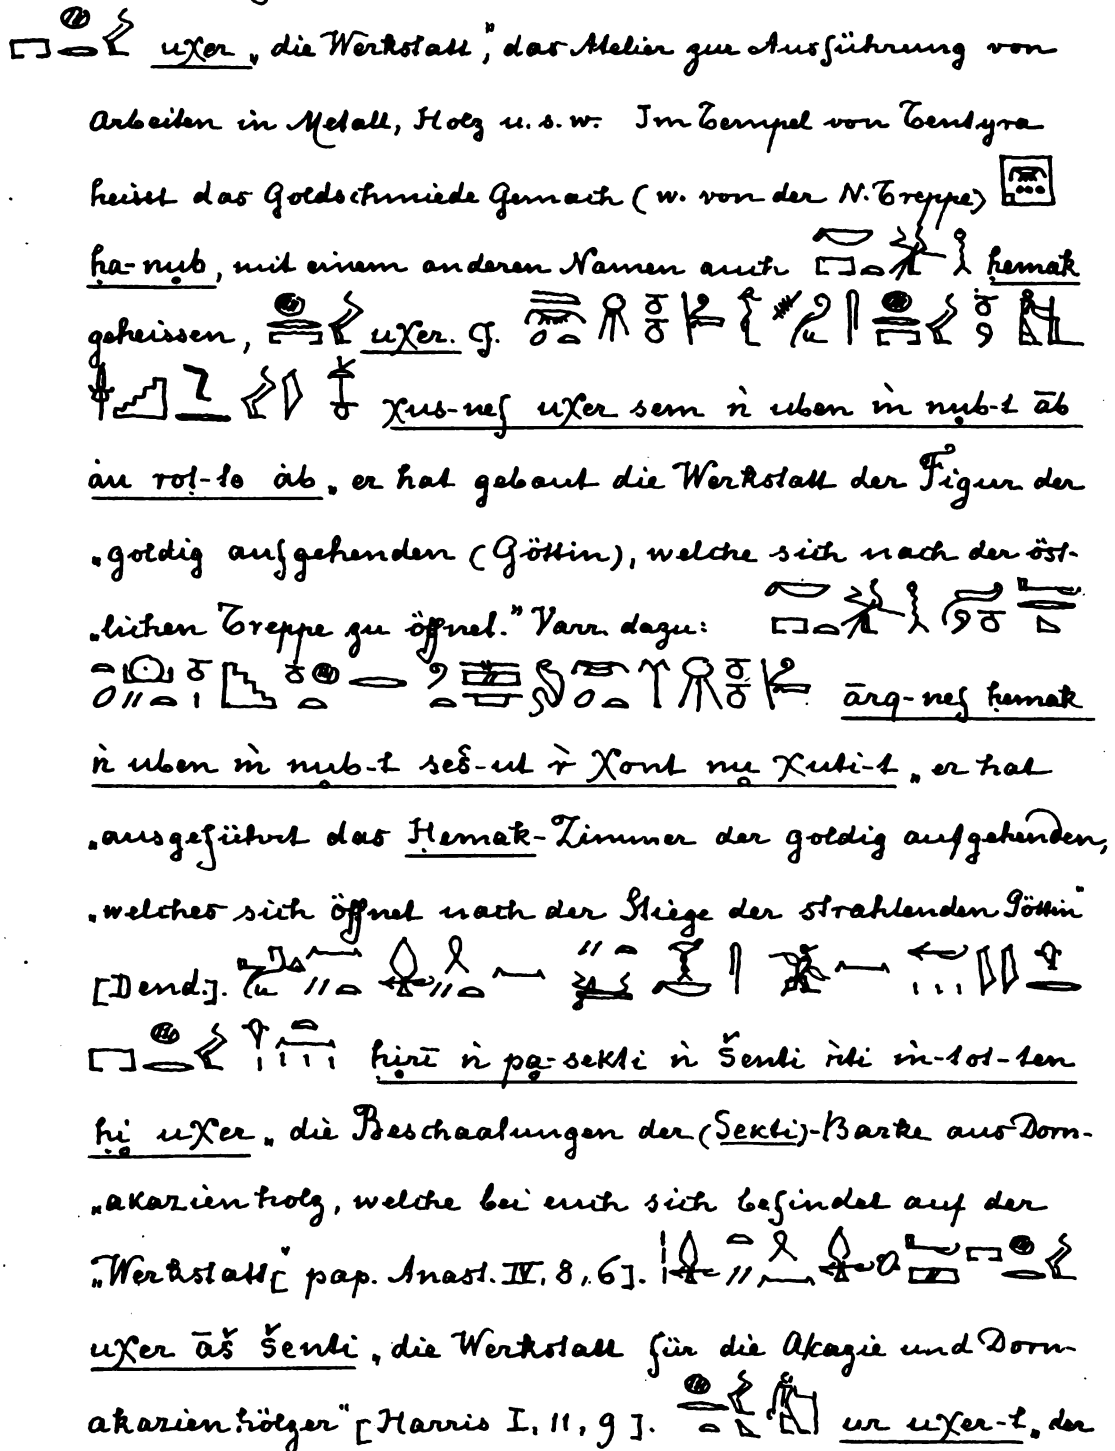 uχer „die Werkstatt”, das Atelier zur Ausführung von
Arbeiten in Metall, Holz u. s. w. Im Tempel von Tentyra
heisst das Goldschmiede Gemach (w. von der N. Treppe)
ḥa-nub, mit einem anderen Namen auch ḥemak
geheissen, uχer. Cf.
χus-nef uχer sem ṅ uben ṁ nub-t āb
àu rot-to àb „er hat gebaut die Werkstatt der Figur der
„goldig aufgehenden (Göttin), welche sich nach der öst-
„lichen Treppe zu öffnet.” Varr. dazu:
ārq-nef ḥemak
ṅ uben ṁ nub-t seš-ut ṙ χont nu χuti-t „er hat
„ausgeführt das Ḥemak-Zimmer der goldig aufgehenden,
„welches sich öffnet nach der Stiege der strahlenden Göttin”
[Dend.].
ḥirī ṅ pa-sekti ṅ šenti ṅti ṁ-tot-ten
ḥi uχer „die Beschaalungen der (Sekti)-Barke aus Dorn-
„akazienholz, welche bei euch sich befindet auf der
„Werkstatt” [pap. Anast. IV, 8, 6].
uχer āš šenti „die Werkstatt für die Akazie und Dorn-
akazienhölzer” [Harris I, 11, 9]. ur uχer-t „der